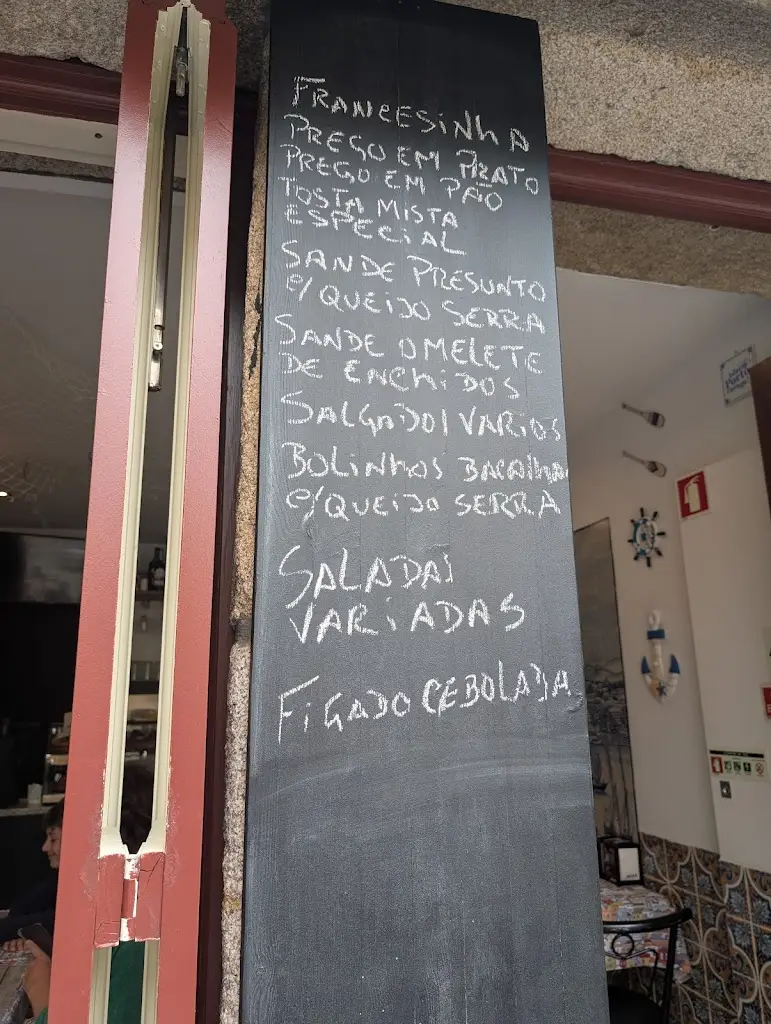 FRANCESINHA
PREGO EM PRATO
PREGO EM PÃO
TOSTA MISTA
ESPECIAL
SANDE PRESUNTO
c/QUEIJO SERRA
SANDE OMELETE
DE ENCHIDOS
SALGADOS VARIOS
BOLINHOS BACALHAU
c/QUEIJO SERRA
SALADAS
VARIADAS
FIGADO CEBOLADA
Porto